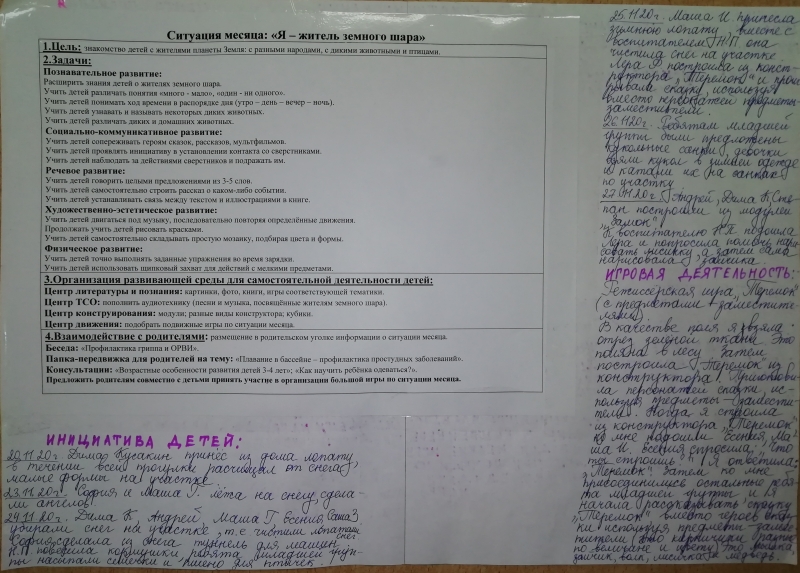 Ситуация месяца: «Я – житель земного шара»
1.Цель: знакомство детей с жителями планеты Земля: с разными народами, с дикими животными и птицами.
2.Задачи:
Познавательное развитие:
Расширить знания детей о жителях земного шара.
Учить детей различать понятия «много - мало», «один - ни одного».
Учить детей понимать ход времени в распорядке дня (утро – день – вечер – ночь).
Учить детей узнавать и называть некоторых диких животных.
Учить детей различать диких и домашних животных.
Социально-коммуникативное развитие:
Учить детей сопереживать героям сказок, рассказов, мультфильмов.
Учить детей проявлять инициативу в установлении контакта со сверстниками.
Учить детей наблюдать за действиями сверстников и подражать им.
Речевое развитие:
Учить детей говорить целыми предложениями из 3-5 слов.
Учить детей самостоятельно строить рассказ о каком-либо событии.
Учить детей устанавливать связь между текстом и иллюстрациями в книге.
Художественно-эстетическое развитие:
Учить детей двигаться под музыку, последовательно повторяя определённые движения.
Продолжать учить детей рисовать красками.
Учить детей самостоятельно складывать простую мозаику, подбирая цвета и формы.
Физическое развитие:
Учить детей точно выполнять заданные упражнения во время зарядки.
Учить детей использовать щипковый захват для действий с мелкими предметами.
3.Организация развивающей среды для самостоятельной деятельности детей:
Центр литературы и познания: картинки, фото, книги, игры соответствующей тематики.
Центр ТСО: пополнить аудиотехнику (песни и музыка, посвящённые жителям земного шара).
Центр конструирования: модули; разные виды конструктора; кубики.
Центр движения: подобрать подвижные игры по ситуации месяца.
4.Взаимодействие с родителями: размещение в родительском уголке информации о ситуации месяца.
Беседа: «Профилактика гриппа и ОРВИ».
Папка-передвижка для родителей на тему: «Плавание в бассейне – профилактика простудных заболеваний».
Консультации: «Возрастные особенности развития детей 3-4 лет»; «Как научить ребёнка одеваться?».
Предложить родителям совместно с детьми принять участие в организации большой игры по ситуации месяца.
ИНИЦИАТИВА ДЕТЕЙ:
20.11.20г. Дима Кусакин принёс из дома лопату
в течении всей прогулки расчищал от снега
малые формы на участке.
23.11.20г. София и Маша Г. лёжа на снегу, сдела-
ли ангелов
24.11.20г. Дима К, Андрей, Маша Г, Есения, Саша З
убирали снег на участке, т.е. чистили лопатами снег
София сделала из снега туннель для машин
Н.П повесила кормушки, ребята младшей груп-
пы насыпали семечки и пшено для птичек.
25.11.20г. Маша И принесла
зимнюю лопату, вместе с
воспитателем Н.П она
чистила снег на участке
Лера Г построила из конст-
руктора „Теремок" и проиг-
рывала сказку, используя
вместо персонажей предметы-
заместители.
26.11.20г. Ребятам младшей
группы были предложены
кукольные санки, девочки
взяли кукол в зимней одежде
и катали их на санках
по участку
27.11.20г. Андрей, Дима К, Сте-
пан построили из модулей
„Замок"
К воспитателю Н.П подошла
Лера и попросила помочь нари-
совать лисичку, а затем сама
нарисовала зайчика.
ИГРОВАЯ ДЕЯТЕЛЬНОСТЬ:
Режиссёрская игра „Теремок"
(с предметами - заместите-
лями)
В качестве поля я взяла
отрез зеленой ткани. Это
поляна в лесу. Затем
построила „Теремок" из
конструктора. Приготови-
ла персонажей сказки, ис-
пользуя предметы-замести-
тели. Когда я строила
из конструктора „Теремок"
ко мне подошли Есения, Ма-
ша И. Есения спросила: „Что
ты строишь?" Я ответила:
„Теремок". Затем ко мне
присоединились остальные ребя-
та младшей группы и я
начала рассказывать сказку
„Теремок", вместо героев сказ-
ки используя предметы-заме-
тители (это кирпичики разные
по величине и цвету). Это мышка,
зайчик, волк, лисичка и медведь